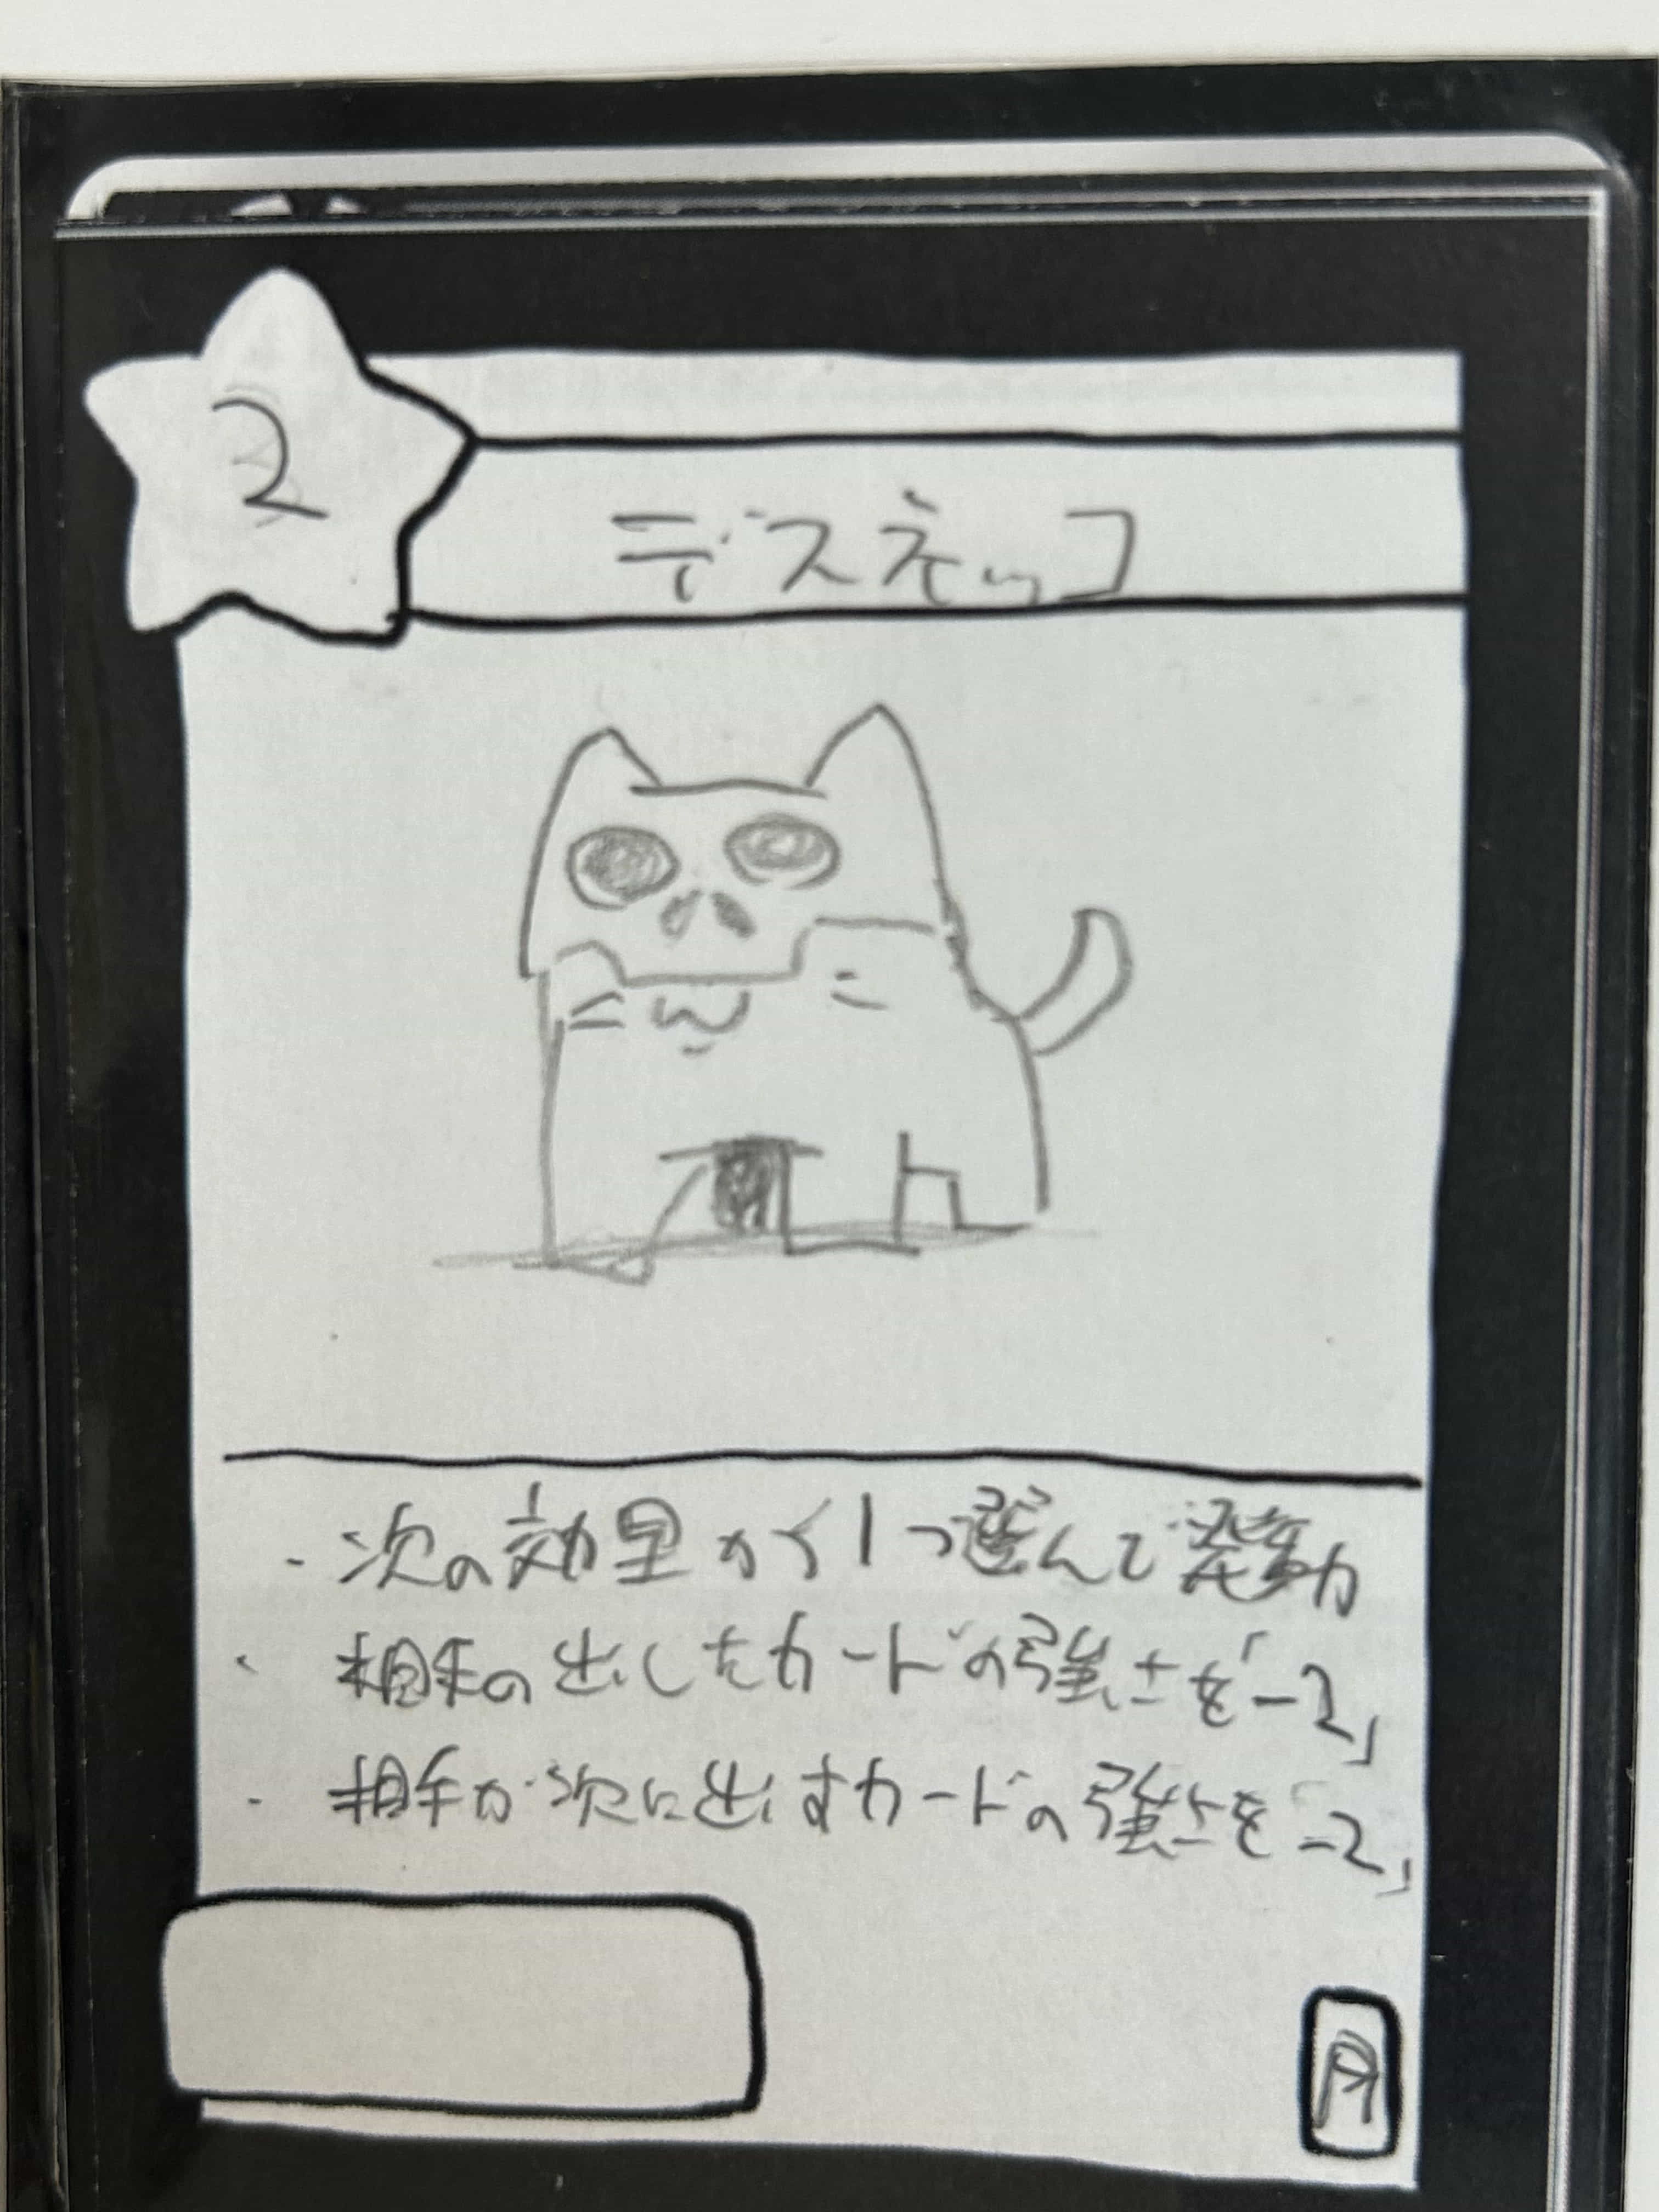 2
デスネッコ
・次の効果から1つ選んで発動
・相手の出したカードの強さを「-2」
・相手が次に出すカードの強さを「-2」